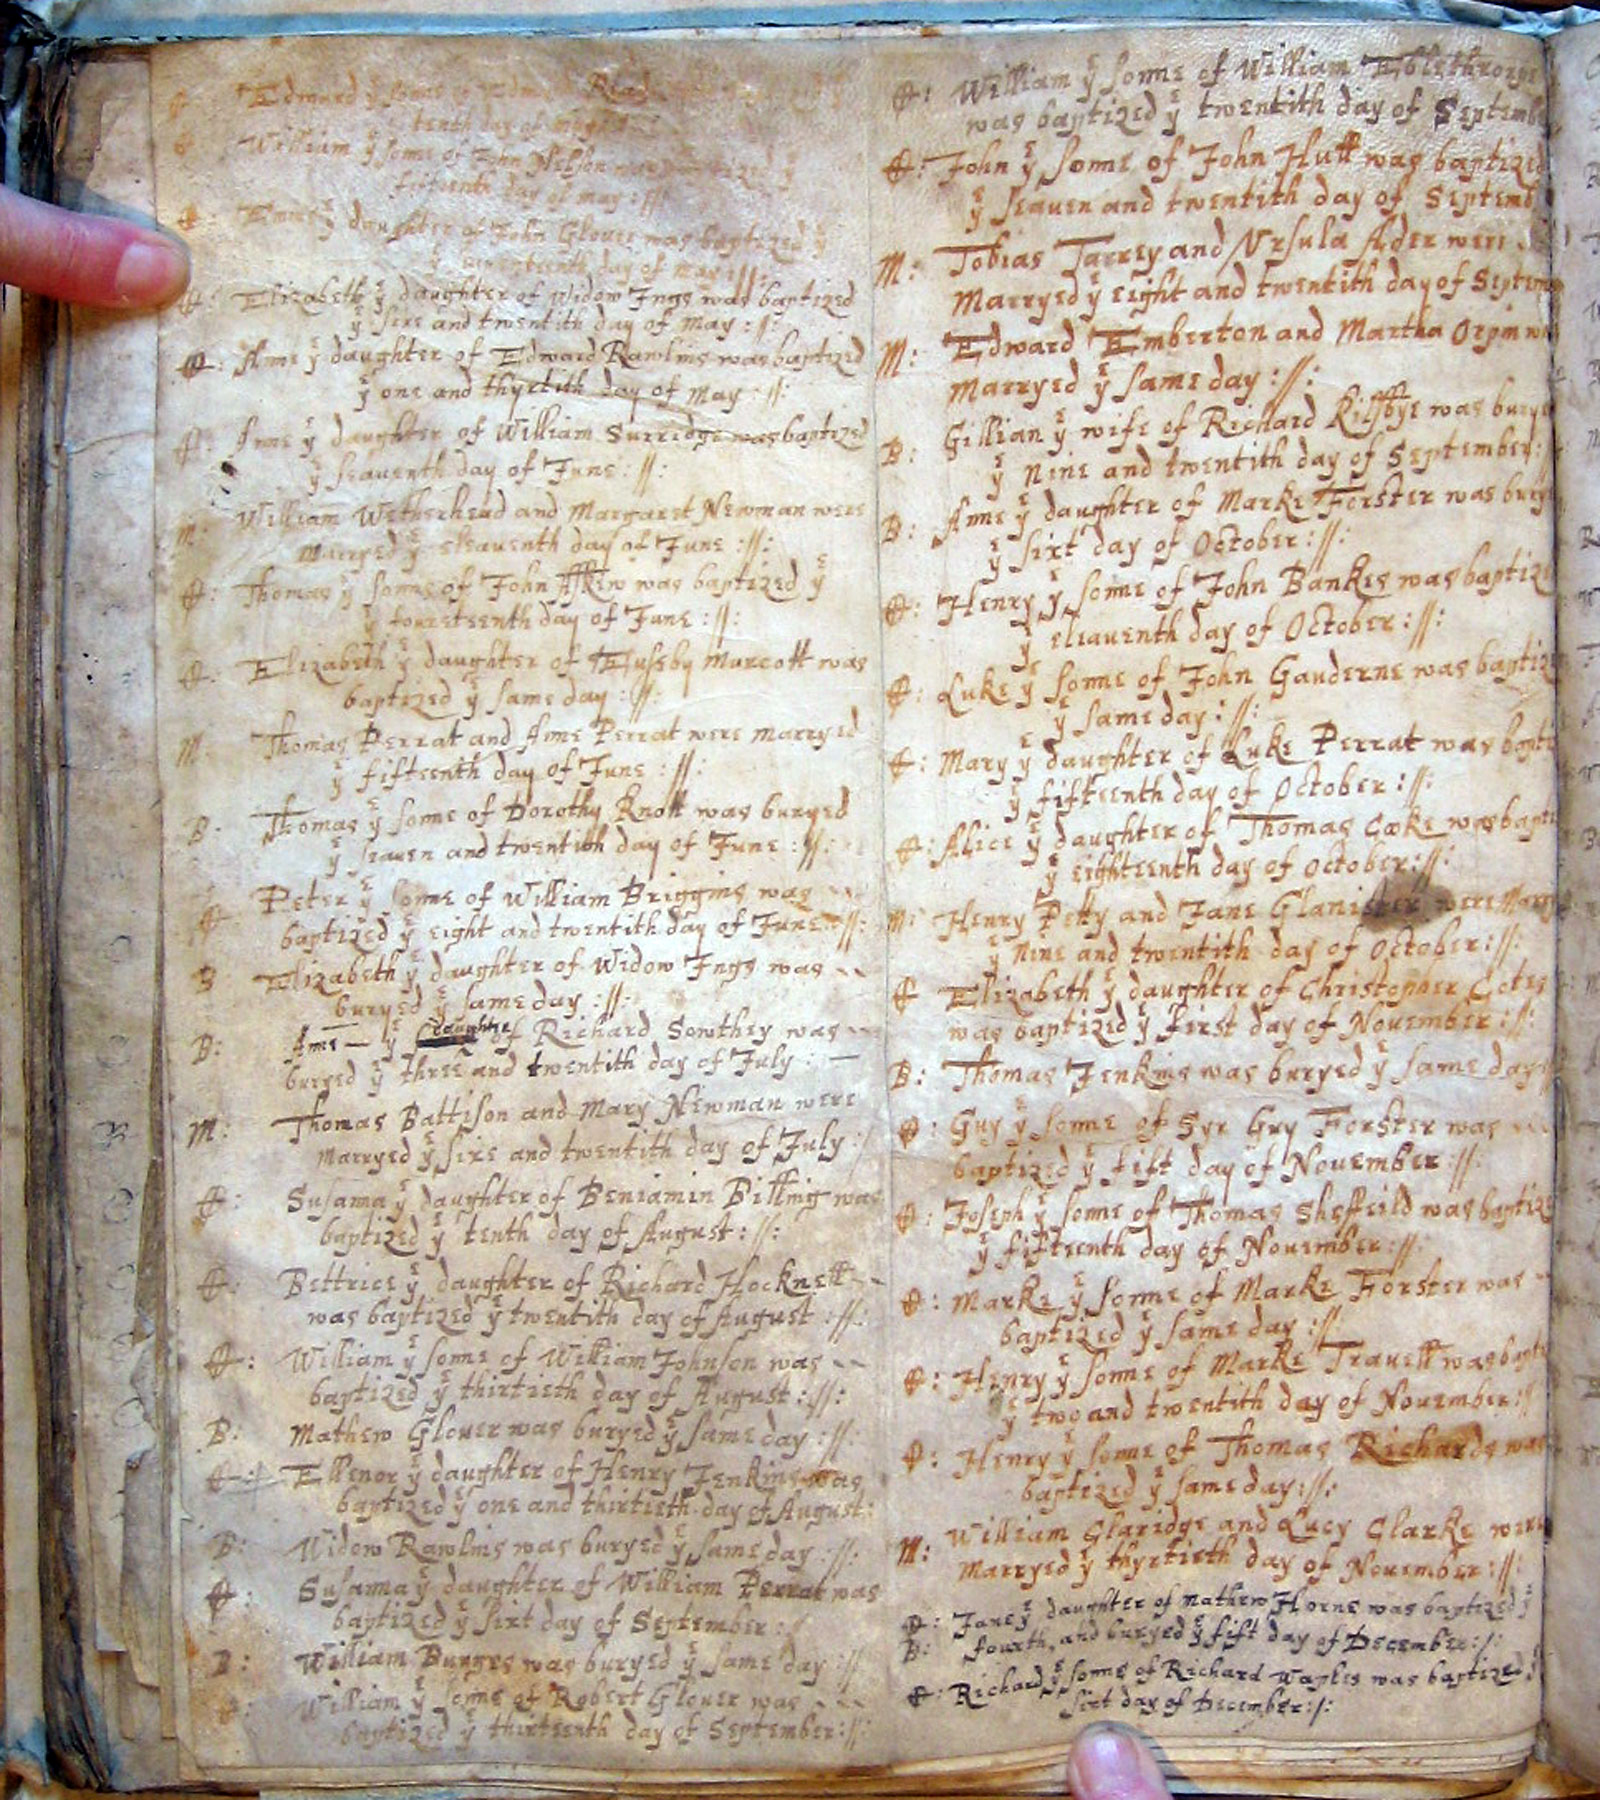 Edmund yͤ sonne of Edmund Read
tenth day of may
William yͤ sonne of John Nelson was baptized yͤ
fifteenth day of may ://:
Emme yͤ daughter of John Glouer was baptized yͤ
day of may ://:
Elizabeth yͤ daughter of Widow Ings was baptized
yͤ sixe and twentith day of may ://:
Anne yͤ daughter of Edward Rawlins was baptized
yͤ one and thyrtith day of May ://:
Anne yͤ daughter of William Surridge was baptized
yͤ seauenth day of June ://:
M: William Wetherhead and Margaret Newman were
marryed yͤ eleauenth day of June ://:
Thomas yͤ sonne of John Askew was baptized yͤ
yͤ fourteteenth day of June ://:
Elizabeth yͤ daughter of Eusseby Murcott was
baptized yͤ same day ://:
M: Thomas Perrat and Anne Perrat were marryed
yͤ fifteenth day of June ://:
B: Thomas yͤ sonne of Dorothy Knott was buryed
yͤ seauen and twentith day of June ://:
Peter yͤ sonne of William Briggins was
baptized yͤ eight and twentith day of June ://:
B Elizabeth yͤ daughter of Widow Ings was
buryed yͤ same day ://:
B: Anne yͤ daughter of Richard Sowthey was
buryed yͤ three and twentith day of July :
M: Thomas Battison and Mary Newman were
marryed yͤ sixe and twentith day of July :/
Susanna yͤ daughter of Beniamin Billing was
baptized yͤ tenth day of August ://:
Bettrice yͤ daughter of Richard Hocknell
was baptized yͤ twentith day of August ://:
William yͤ sonne of William Johnson was
baptized yͤ thirtieth day of August ://:
B: Mathew Glouer was buryed yͤ same day ://:
Ellenor yͤ daughter of Henry Jenkins was
baptized yͤ one and thirtieth day of August:
B: Widow Rawlins was buryed yͤ same day ://:
Susanna yͤ daughter of William Perrat was
baptized yͤ sixt day of September :/
B: William Burges was buryed yͤ same day ://
William yͤ sonne of Robert Glouer was
baptized yͤ thirteenth day of September ://:
William yͤ sonne of William
was baptized yͤ twentith day of Septemb
John yͤ sonne of John Hutt was baptized
yͤ seauen and twentith day of Septemb
M: Tobias Tarrey and Vrsula Ader were
Marryed yͤ eight and twentith day of Septem
M: Edward Emberton and Martha Orpin w
Marryed yͤ same day ://:
B: Gillian yͤ wife of Richard Kilsbye was burye
yͤ nine and twentith day of September:
B: Anne yͤ daughter of Marke Forster was bury
yͤ sixt day of October ://:
Henry yͤ sonne of John Bankes was baptize
yͤ eliauenth day of October ://:
Luke yͤ sonne of John Gauderne was baptiz
yͤ same day ://:
Mary yͤ daughter of Luke Perrat was bapti
yͤ fifteenth day of October ://:
Alice yͤ daughter of Thomas Cooke was bapti
yͤ eighteenth day of October ://:
M: Henry Petty and Jane Glanister were Marry
yͤ nine and twentith day of October ://:
Elizabeth yͤ daughter of Christopher Cotes
was baptized yͤ first day of November ://:
B: Thomas Jenkins was buryed yͤ same day
Guy yͤ sonne of Syr Guy Forster was
baptized yͤ fift day of November ://:
Joseph yͤ sonne of Thomas Sheffeild was baptiz
yͤ fifteenth day of November ://:
Marke yͤ sonne of Marke Forster was
baptized yͤ same day ://:
Henry yͤ sonne of Marke Travell was bapti
yͤ two and twentith day of November ://
Henry yͤ sonne of Thomas Richards was
baptized yͤ same day ://:
M: William Glaridge and Lucy Clarke were
Marryed yͤ thyrtieth day of November ://:
Jane yͤ daughter of Mathew Horne was baptized yͤ
B: fourth, and buryed yͤ fift day of December :/:
Richard yͤ sonne of Richard Waples was baptized yͤ
sixt day of December :/: